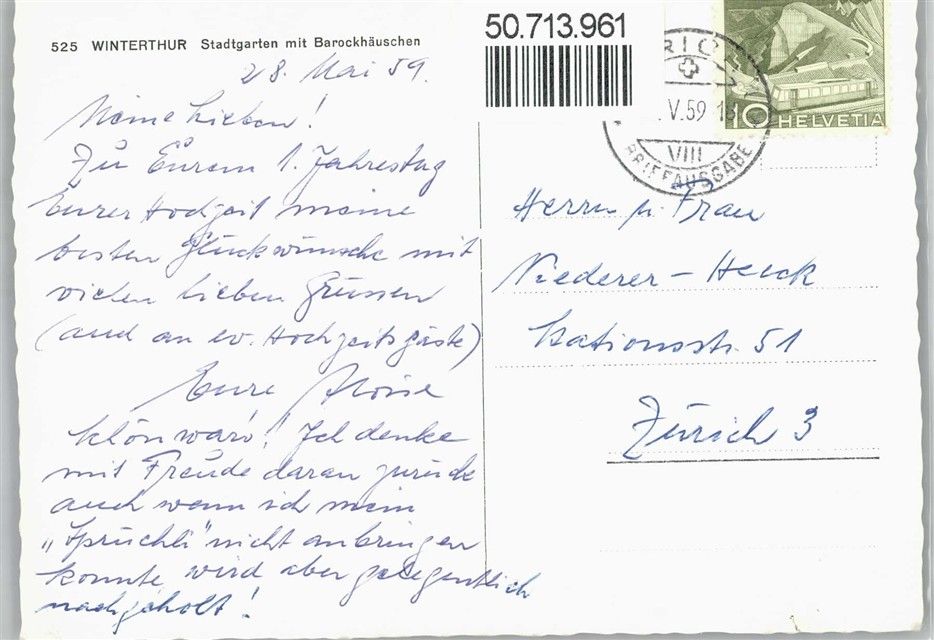 525 WINTERTHUR Stadtgarten mit Barockhäuschen
28. Mai 59.
Meine Lieben!
Zu Eurem 1. Jahrestag
Eurer Hochzeit meine
besten Glückwünsche mit
vielen lieben Grüssen
(auch an ev. Hochzeitsgäste)
Eure
schön wars! Ich denke
mit Freude daran zurück
auch wenn ich mein
„Sprüchli" nicht anbringen
konnte wird aber gelegentlich
nachgeholt!
50.713.961
.V.59
VIII
BRIEFAUSGABE
10 HELVETIA
Herrn u. Frau
Niederer-Heuck
str. 51
Zürich 3